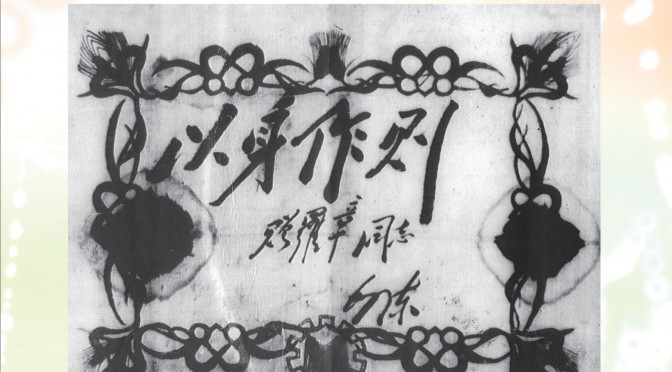 以身作则
赠耀章同志
东